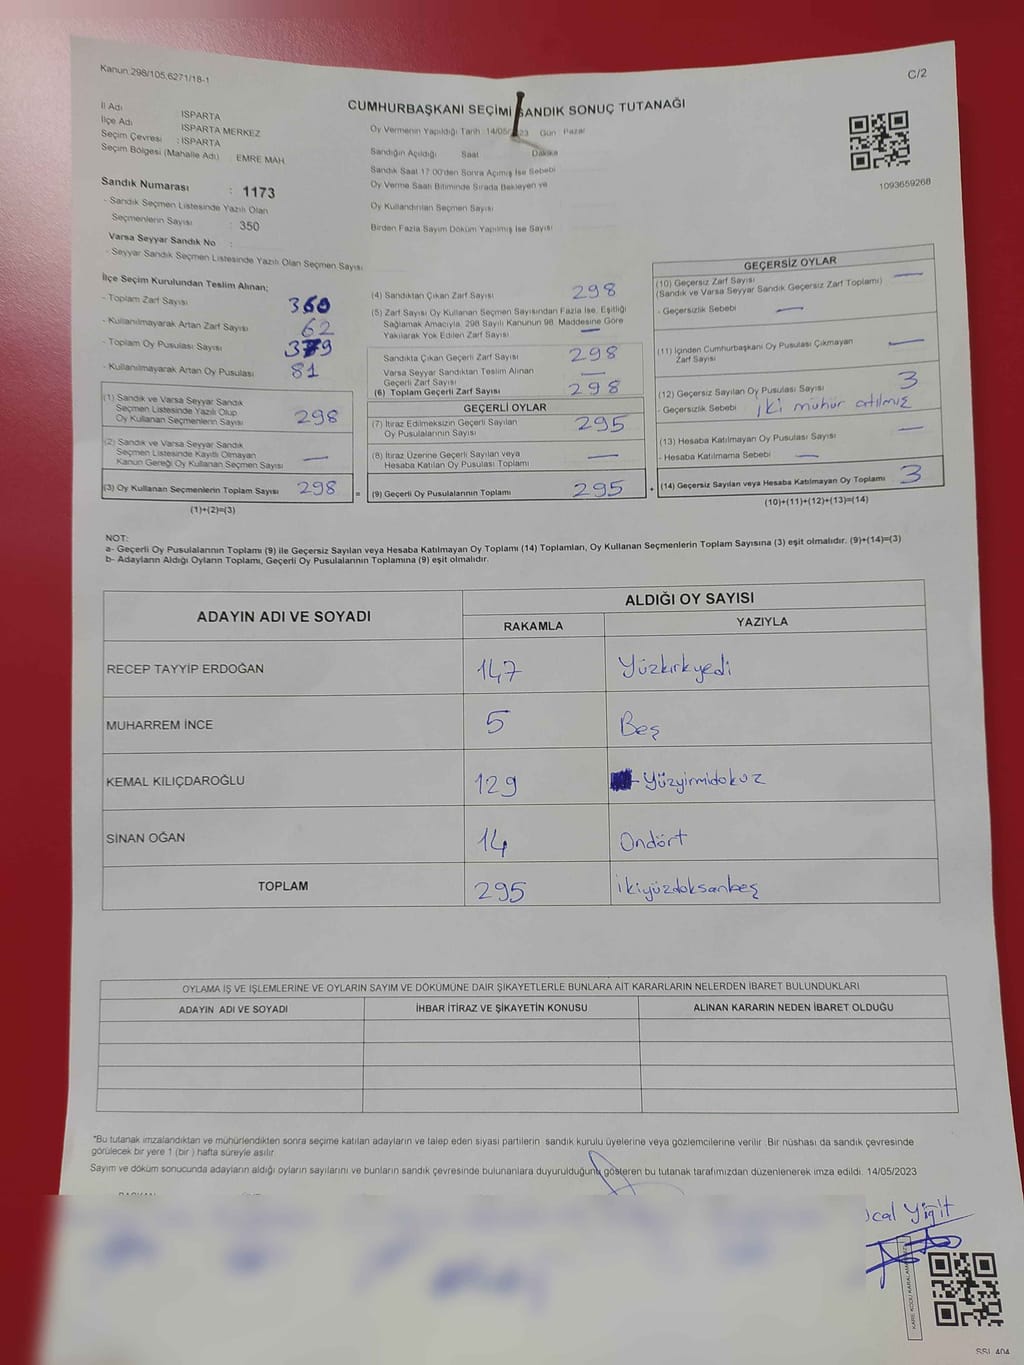 Kanun:298/105,6271/18-1
C/2
CUMHURBAŞKANI SEÇİMİ SANDIK SONUÇ TUTANAĞI
İl Adı : ISPARTA
İlçe Adı ISPARTA MERKEZ
Seçim Çevresi : ISPARTA
Seçim Bölgesi (Mahalle Adı) EMRE MAH
Sandık Numarası : 1173
- Sandık Seçmen Listesinde Yazılı Olan
Seçmenlerin Sayısı : 350
Varsa Seyyar Sandık No :
- Seyyar Sandık Seçmen Listesinde Yazılı Olan Seçmen Sayısı
Oy Vermenin Yapıldığı Tarih: 14/05/ 23 Gün Pazar
Sandığın Açıldığı Saat Dakika
Sandık Saat 17:00'den Sonra Açılmış İse Sebebi
Oy Verme Saati Bitiminde Sırada Bekleyen ve
Oy Kullandırılan Seçmen Sayısı
Birden Fazla Sayım Döküm Yapılmış İse Sayısı
1093659268
İlçe Seçim Kurulundan Teslim Alınan;
- Toplam Zarf Sayısı 360
- Kullanılmayarak Artan Zarf Sayısı 62
- Toplam Oy Pusulası Sayısı 379
- Kullanılmayarak Artan Oy Pusulası 81
(1) Sandık ve Varsa Seyyar Sandık
Seçmen Listesinde Yazılı Olup
Oy Kullanan Seçmenlerin Sayısı 298
(2) Sandık ve Varsa Seyyar Sandık
Seçmen Listesinde Kayıtlı Olmayan
Kanun Gereği Oy Kullanan Seçmen Sayısı —
(3) Oy Kullanan Seçmenlerin Toplam Sayısı 298 =
(1)+(2)=(3)
(4) Sandıktan Çıkan Zarf Sayısı 298
(5) Zarf Sayısı Oy Kullanan Seçmen Sayısından Fazla İse, Eşitliği
Sağlamak Amacıyla, 298 Sayılı Kanunun 98. Maddesine Göre
Yakılarak Yok Edilen Zarf Sayısı —
Sandıkta Çıkan Geçerli Zarf Sayısı 298
Varsa Seyyar Sandıktan Teslim Alınan
Geçerli Zarf Sayısı —
(6) Toplam Geçerli Zarf Sayısı 298
GEÇERLİ OYLAR
(7) İtiraz Edilmeksizin Geçerli Sayılan
Oy Pusulalarının Sayısı 295
(8) İtiraz Üzerine Geçerli Sayılan veya
Hesaba Katılan Oy Pusulası Toplamı —
(9) Geçerli Oy Pusulalarının Toplamı 295 +
GEÇERSİZ OYLAR
(10) Geçersiz Zarf Sayısı
(Sandık ve Varsa Seyyar Sandık Geçersiz Zarf Toplamı) —
- Geçersizlik Sebebi —
(11) İçinden Cumhurbaşkanı Oy Pusulası Çıkmayan
Zarf Sayısı —
(12) Geçersiz Sayılan Oy Pusulası Sayısı 3
- Geçersizlik Sebebi iki mühür atılmış
(13) Hesaba Katılmayan Oy Pusulası Sayısı —
- Hesaba Katılmama Sebebi —
(14) Geçersiz Sayılan veya Hesaba Katılmayan Oy Toplamı 3
(10)+(11)+(12)+(13)=(14)
NOT:
a- Geçerli Oy Pusulalarının Toplamı (9) ile Geçersiz Sayılan veya Hesaba Katılmayan Oy Toplamı (14) Toplamları, Oy Kullanan Seçmenlerin Toplam Sayısına (3) eşit olmalıdır. (9)+(14)=(3)
b- Adayların Aldığı Oyların Toplamı, Geçerli Oy Pusulalarının Toplamına (9) eşit olmalıdır.
ADAYIN ADI VE SOYADI
ALDIĞI OY SAYISI
RAKAMLA YAZIYLA
RECEP TAYYİP ERDOĞAN 147 Yüzkırkyedi
MUHARREM İNCE 5 Beş
KEMAL KILIÇDAROĞLU 129 Yüzyirmidokuz
SİNAN OĞAN 14 Ondört
TOPLAM 295 ikiyüzdoksanbeş
OYLAMA İŞ VE İŞLEMLERİNE VE OYLARIN SAYIM VE DÖKÜMÜNE DAİR ŞİKAYETLERLE BUNLARA AİT KARARLARIN NELERDEN İBARET BULUNDUKLARI
ADAYIN ADI VE SOYADI İHBAR İTİRAZ VE ŞİKAYETİN KONUSU ALINAN KARARIN NEDEN İBARET OLDUĞU
*Bu tutanak imzalandıktan ve mühürlendikten sonra seçime katılan adayların ve talep eden siyasi partilerin sandık kurulu üyelerine veya gözlemcilerine verilir. Bir nüshası da sandık çevresinde
görülecek bir yere 1 (bir ) hafta süreyle asılır.
Sayım ve döküm sonucunda adayların aldığı oyların sayılarını ve bunların sandık çevresinde bulunanlara duyurulduğunu gösteren bu tutanak tarafımızdan düzenlenerek imza edildi. 14/05/2023
Yiğit